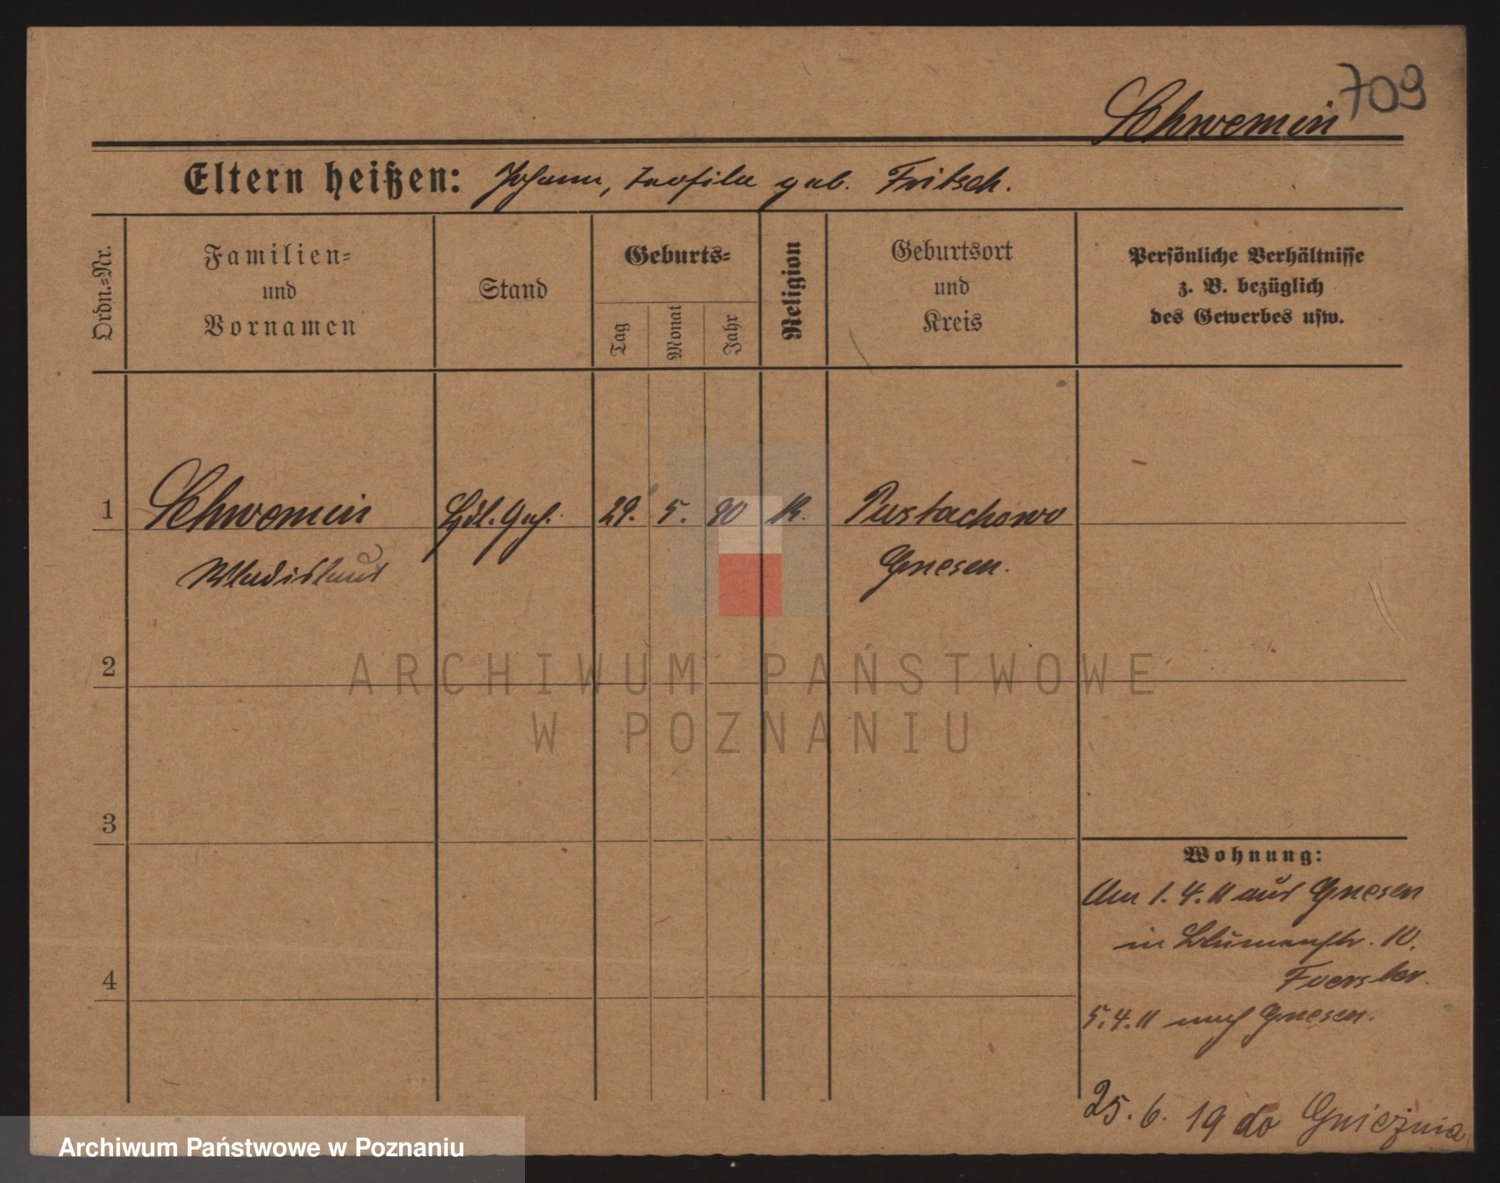 709
Schwemin
Eltern heißen: Johann, Teofila geb. Fritsch.
Ordn.=Nr.
Familien=
und
Vornamen
Stand
Geburts=
Tag
Monat
Jahr
Religion
Geburtsort
und
Kreis
Persönliche Verhältnisse
z. B. bezüglich
des Gewerbes usw.
1 Schwemin Hdl. Geh. 29. 5. 90 K. Pustachowo
Wladislaus Gnesen.
2
ARCHIWUM PAŃSTWOWE
W POZNANIU
3
Wohnung:
Am 1. 4. 11 aus Gnesen
in Blumenstr. 10.
Foerster.
4
5. 4. 11 nach Gnesen.
25. 6. 19 do Gniezna
Archiwum Państwowe w Poznaniu